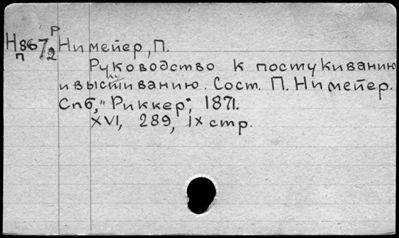 Р
Н867/2 Нимейер, П.
п
Руководство к постукиванию
лу
и выстиванию. Сост. П. Нимейер.
Спб, "Риккер", 1871.
XVI, 289, IX стр.